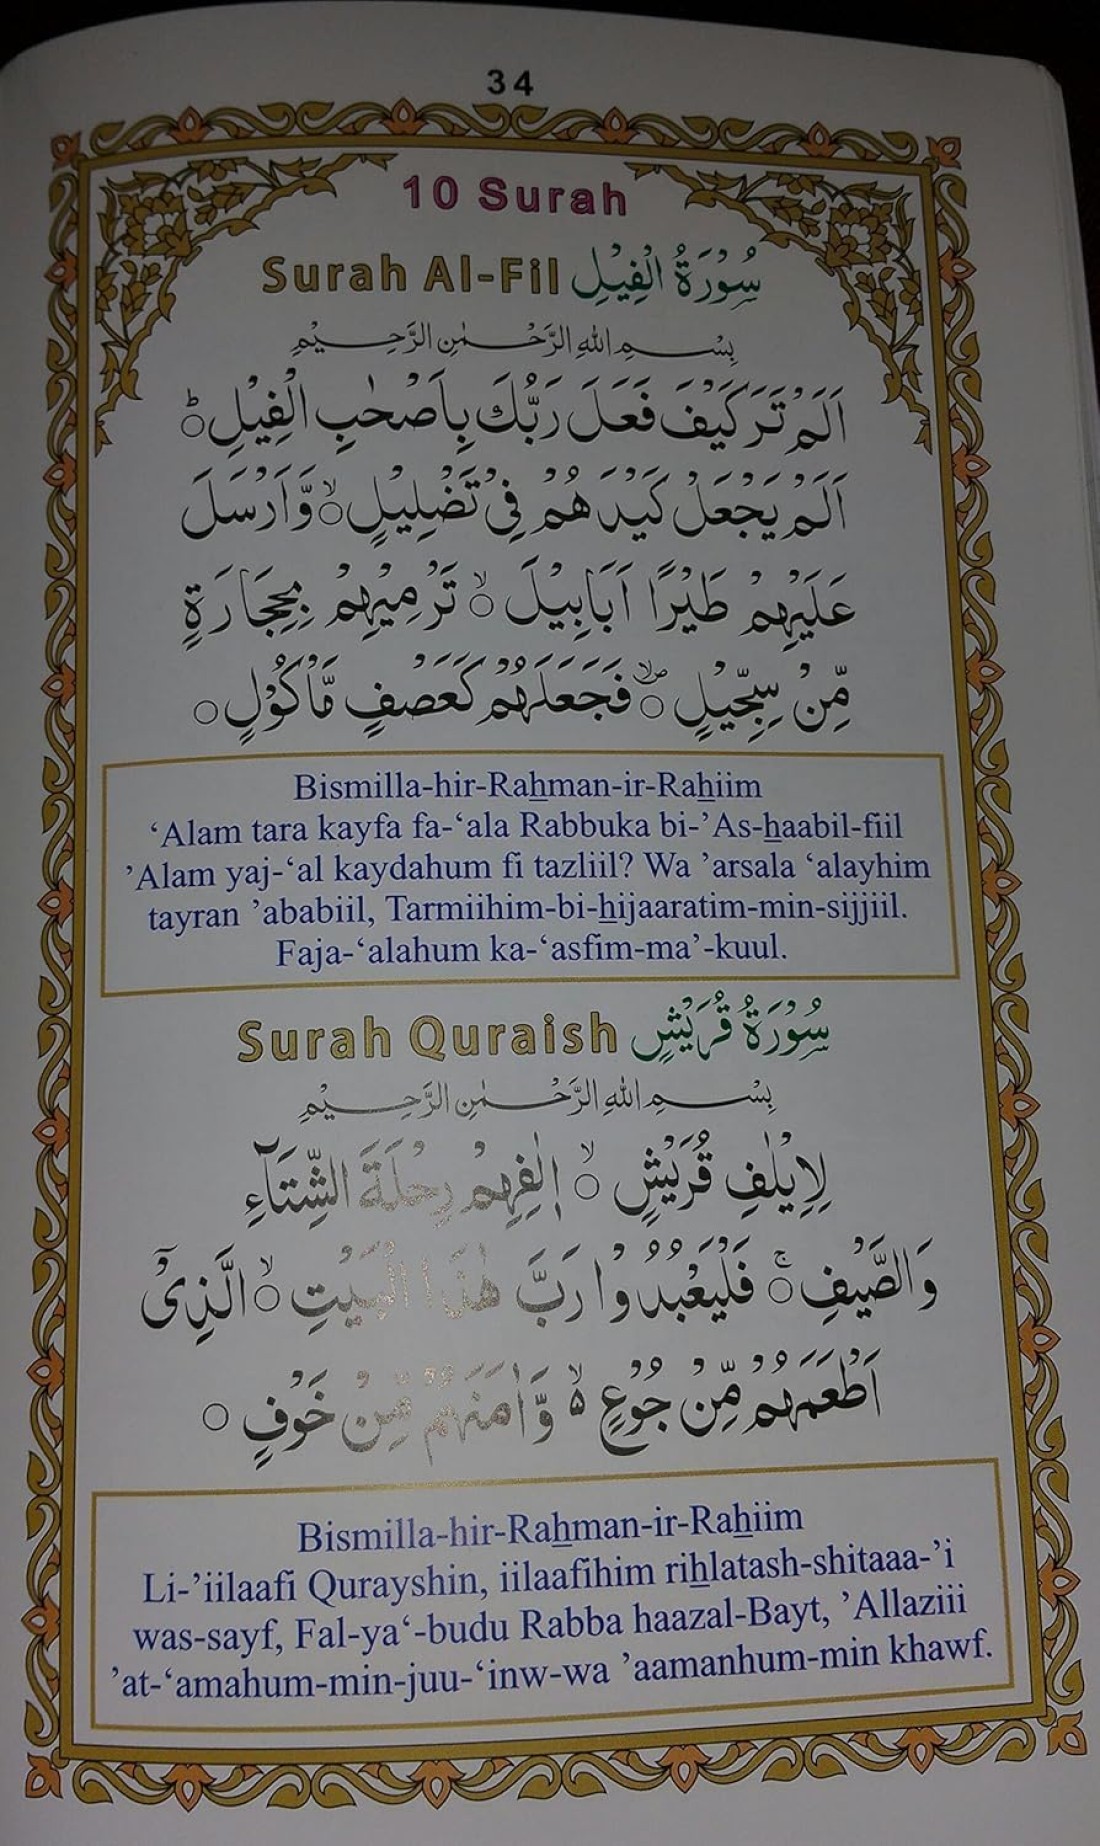 34
10 Surah
Surah Al-Fil سُوْرَةُ الْفِيْلِ
بِسْمِ اللهِ الرَّحْمٰنِ الرَّحِيْمِ
اَلَمْ تَرَ كَيْفَ فَعَلَ رَبُّكَ بِاَصْحٰبِ الْفِيْلِ ○ؕ
اَلَمْ يَجْعَلْ كَيْدَهُمْ فِيْ تَضْلِيْلٍ ○ۙ وَّاَرْسَلَ
عَلَيْهِمْ طَيْرًا اَبَابِيْلَ ○ۙ تَرْمِيْهِمْ بِحِجَارَةٍ
مِّنْ سِجِّيْلٍ ○ۙ فَجَعَلَهُمْ كَعَصْفٍ مَّاْكُوْلٍ ○
Bismilla-hir-Ra<u>h</u>man-ir-Ra<u>h</u>iim
‘Alam tara kayfa fa-‘ala Rabbuka bi-’As-<u>h</u>aabil-fiil
’Alam yaj-‘al kaydahum fi tazliil? Wa ’arsala ‘alayhim
tayran ’ababiil, Tarmiihim-bi-<u>h</u>ijaaratim-min-sijjiil.
Faja-‘alahum ka-‘asfim-ma’-kuul.
Surah Quraish سُوْرَةُ قُرَيْشٍ
بِسْمِ اللهِ الرَّحْمٰنِ الرَّحِيْمِ
لِاِيْلٰفِ قُرَيْشٍ ○ۙ اٖلٰفِهِمْ رِحْلَةَ الشِّتَآءِ
وَالصَّيْفِ ○ۚ فَلْيَعْبُدُوْا رَبَّ هٰذَا الْبَيْتِ ○ۙ الَّذِيْٓ
اَطْعَمَهُمْ مِّنْ جُوْعٍ ۙ۵ وَّاٰمَنَهُمْ مِّنْ خَوْفٍ ○
Bismilla-hir-Ra<u>h</u>man-ir-Ra<u>h</u>iim
Li-’iilaafi Qurayshin, iilaafihim ri<u>h</u>latash-shitaaa-’i
was-sayf, Fal-ya‘-budu Rabba haazal-Bayt, ’Allaziii
’at-‘amahum-min-juu-‘inw-wa ’aamanhum-min khawf.